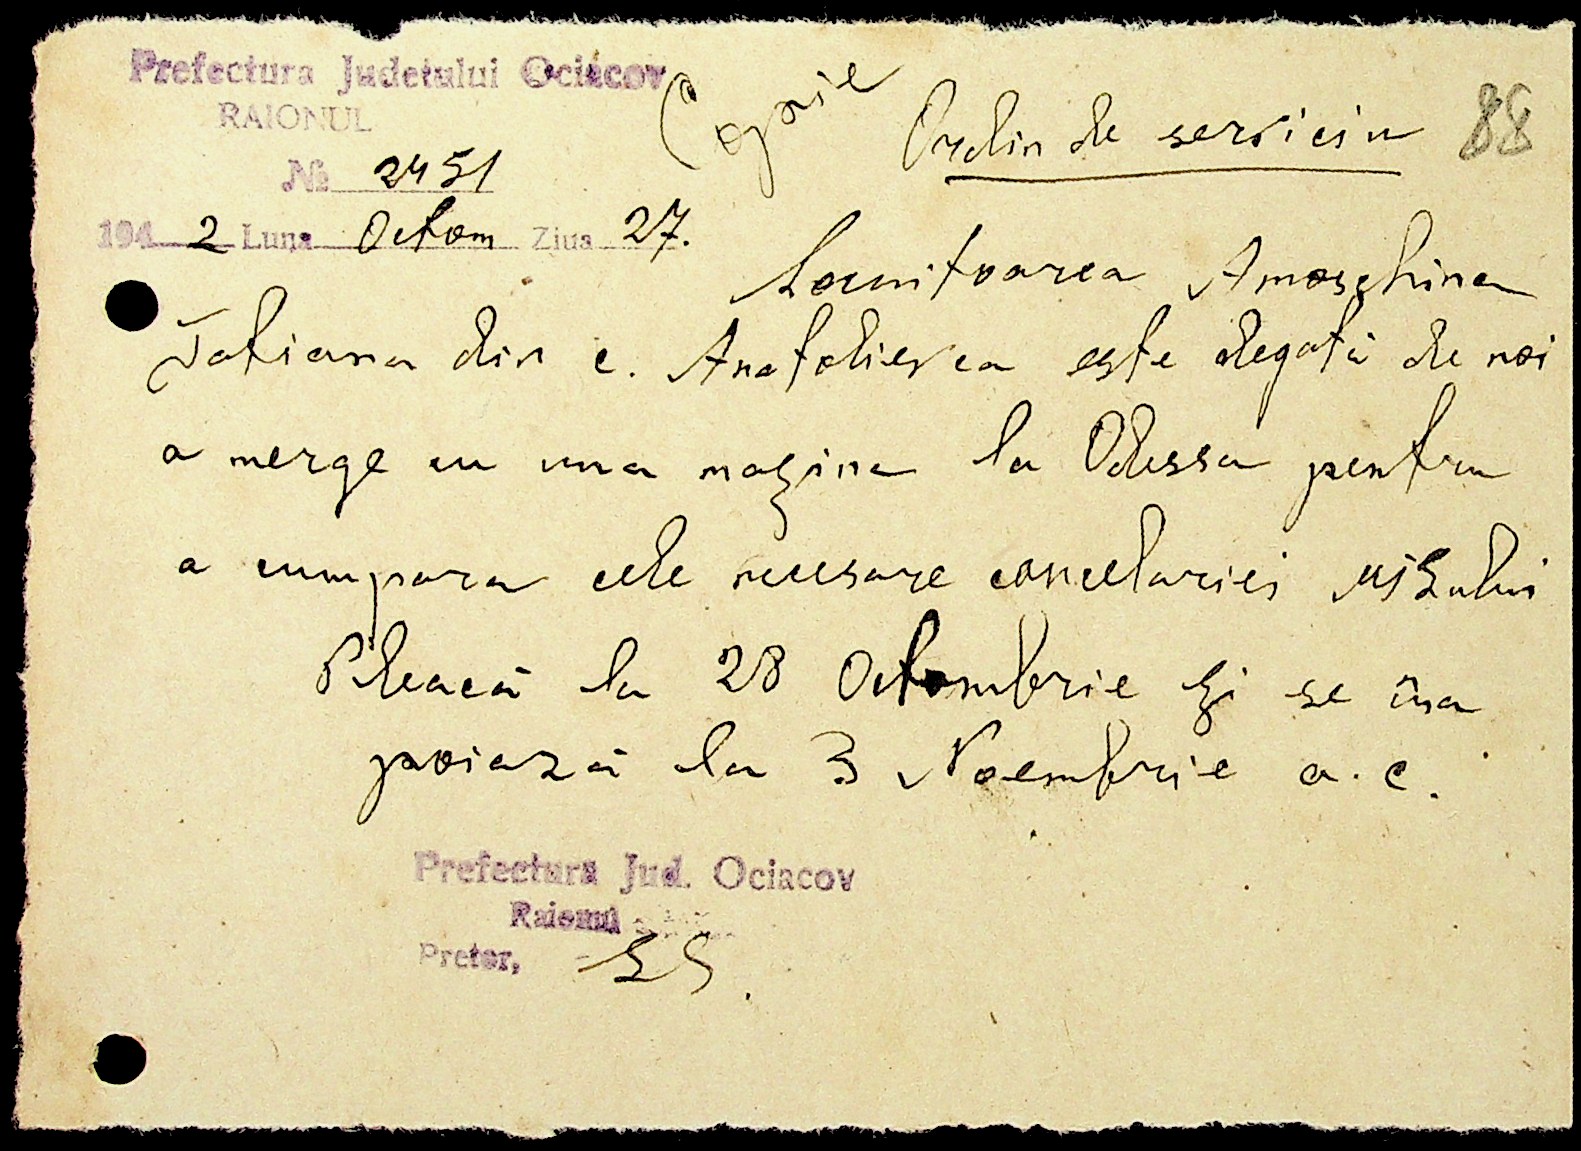 Prefectura Judetului Ociacov
RAIONUL
Copie
Ordin de serviciu
88
№ 2451
1942 Luna Octom Ziua 27.
Locuitoarea Amoschina
Tatiana din c. Anatolievca este degată de noi
a merge cu una mașina la Odessa pentru
a cumpara cele necesare cancelariei
Pleacă la 28 Octombrie și se îna
poiază la 3 Noembrie a.c.
Prefectura Jud. Ociacov
Raionul
Pretor,